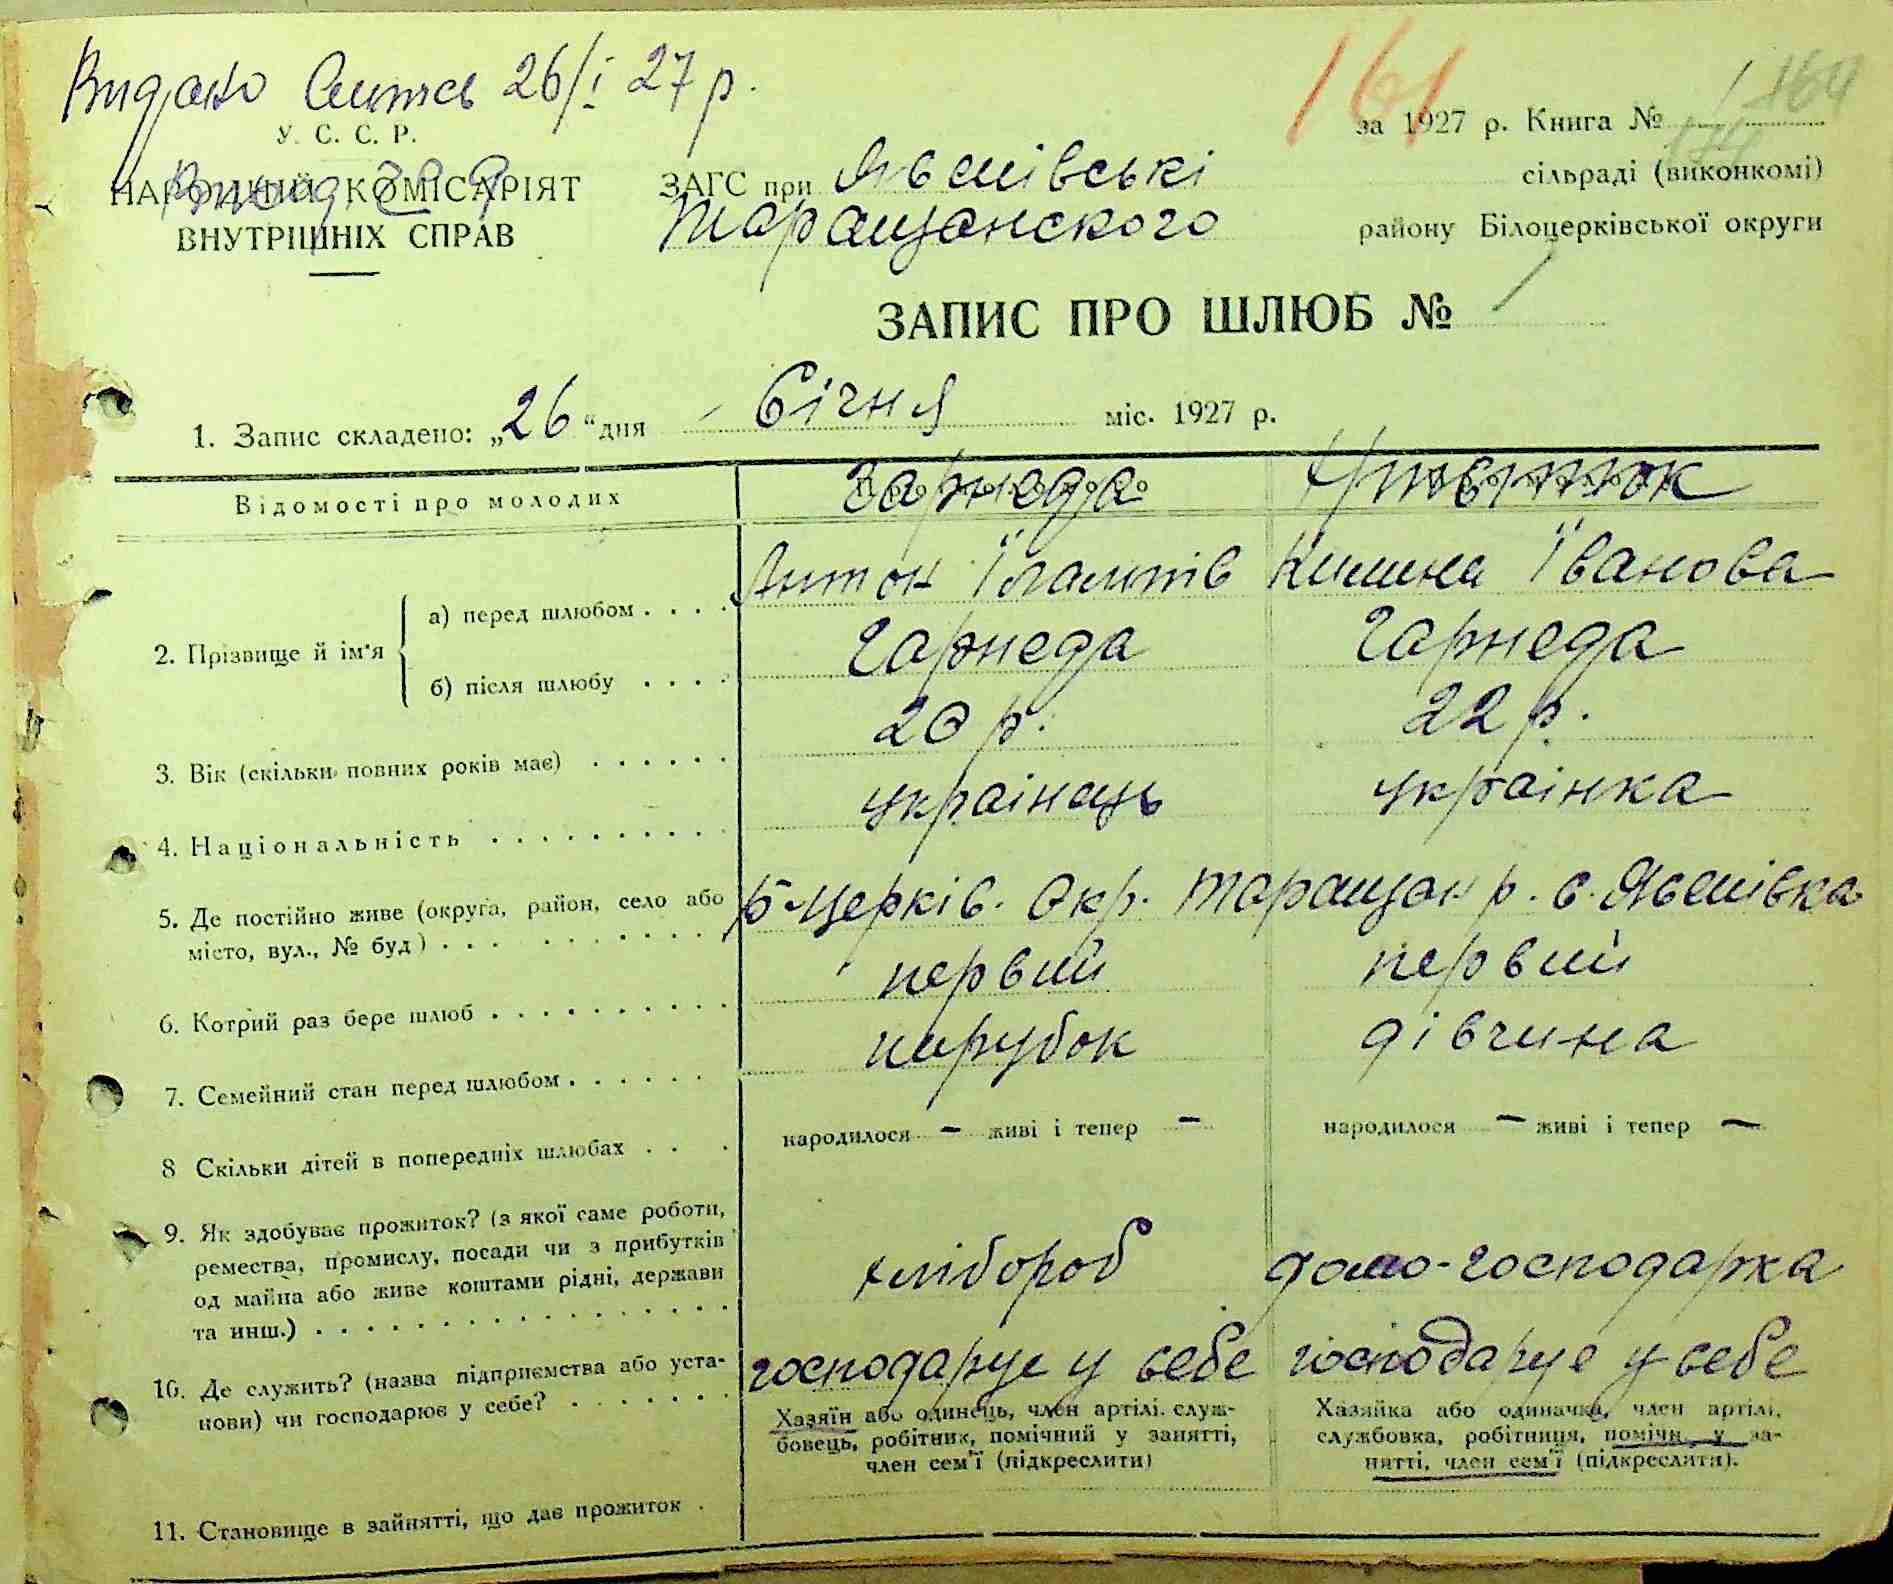 Видано Витяг 26/I 27 р.
161
164
У. С. С. Р.
за 1927 р. Книга №
НАРОДНИЙ КОМІСАРІЯТ
ВНУТРІШНІХ СПРАВ
ЗАГС при Лісивські сільраді (виконкомі)
Таращанского району Білоцерківської округи
ЗАПИС ПРО ШЛЮБ № 1
1. Запис складено: „26 “ дня Січня міс. 1927 р.
Відомості про молодих
Гарнеда
2. Прізвище й ім'я
а) перед шлюбом . . . . Антон Їванова
б) після шлюбу . . . . Гарнеда Гарнеда
3. Вік (скільки повних років має) . . . . . . 20 р. 22 р.
4. Національність . . . . . . . . . українець українка
5. Де постійно живе (округа, район, село або
місто, вул., № буд) . . . Б-Церків. Окр. Таращан р. с.
6. Котрий раз бере шлюб . . . . . . . . . первий первий
7. Семейний стан перед шлюбом . . . . . . парубок дівчина
8 Скільки дітей в попередніх шлюбах . . . народилося — живі і тепер — народилося — живі і тепер —
9. Як здобуває прожиток? (з якої саме роботи,
ремества, промислу, посади чи з прибутків
од майна або живе коштами рідні, держави
та инш.) . . . . . . . . . . . . . . . хлібороб домо-господарка
10. Де служить? (назва підприємства або уста-
нови) чи господарює у себе? . . . . . . господарує у себе господарує у себе
11. Становище в зайнятті, що дає прожиток .
Хазяїн або одинець, член артілі, служ-
бовець, робітник, помічний у занятті,
член сем'ї (підкреслити)
Хазяйка або одиначка, член артілі,
службовка, робітниця, помічн. у за-
нятті, член сем'ї (підкреслити).